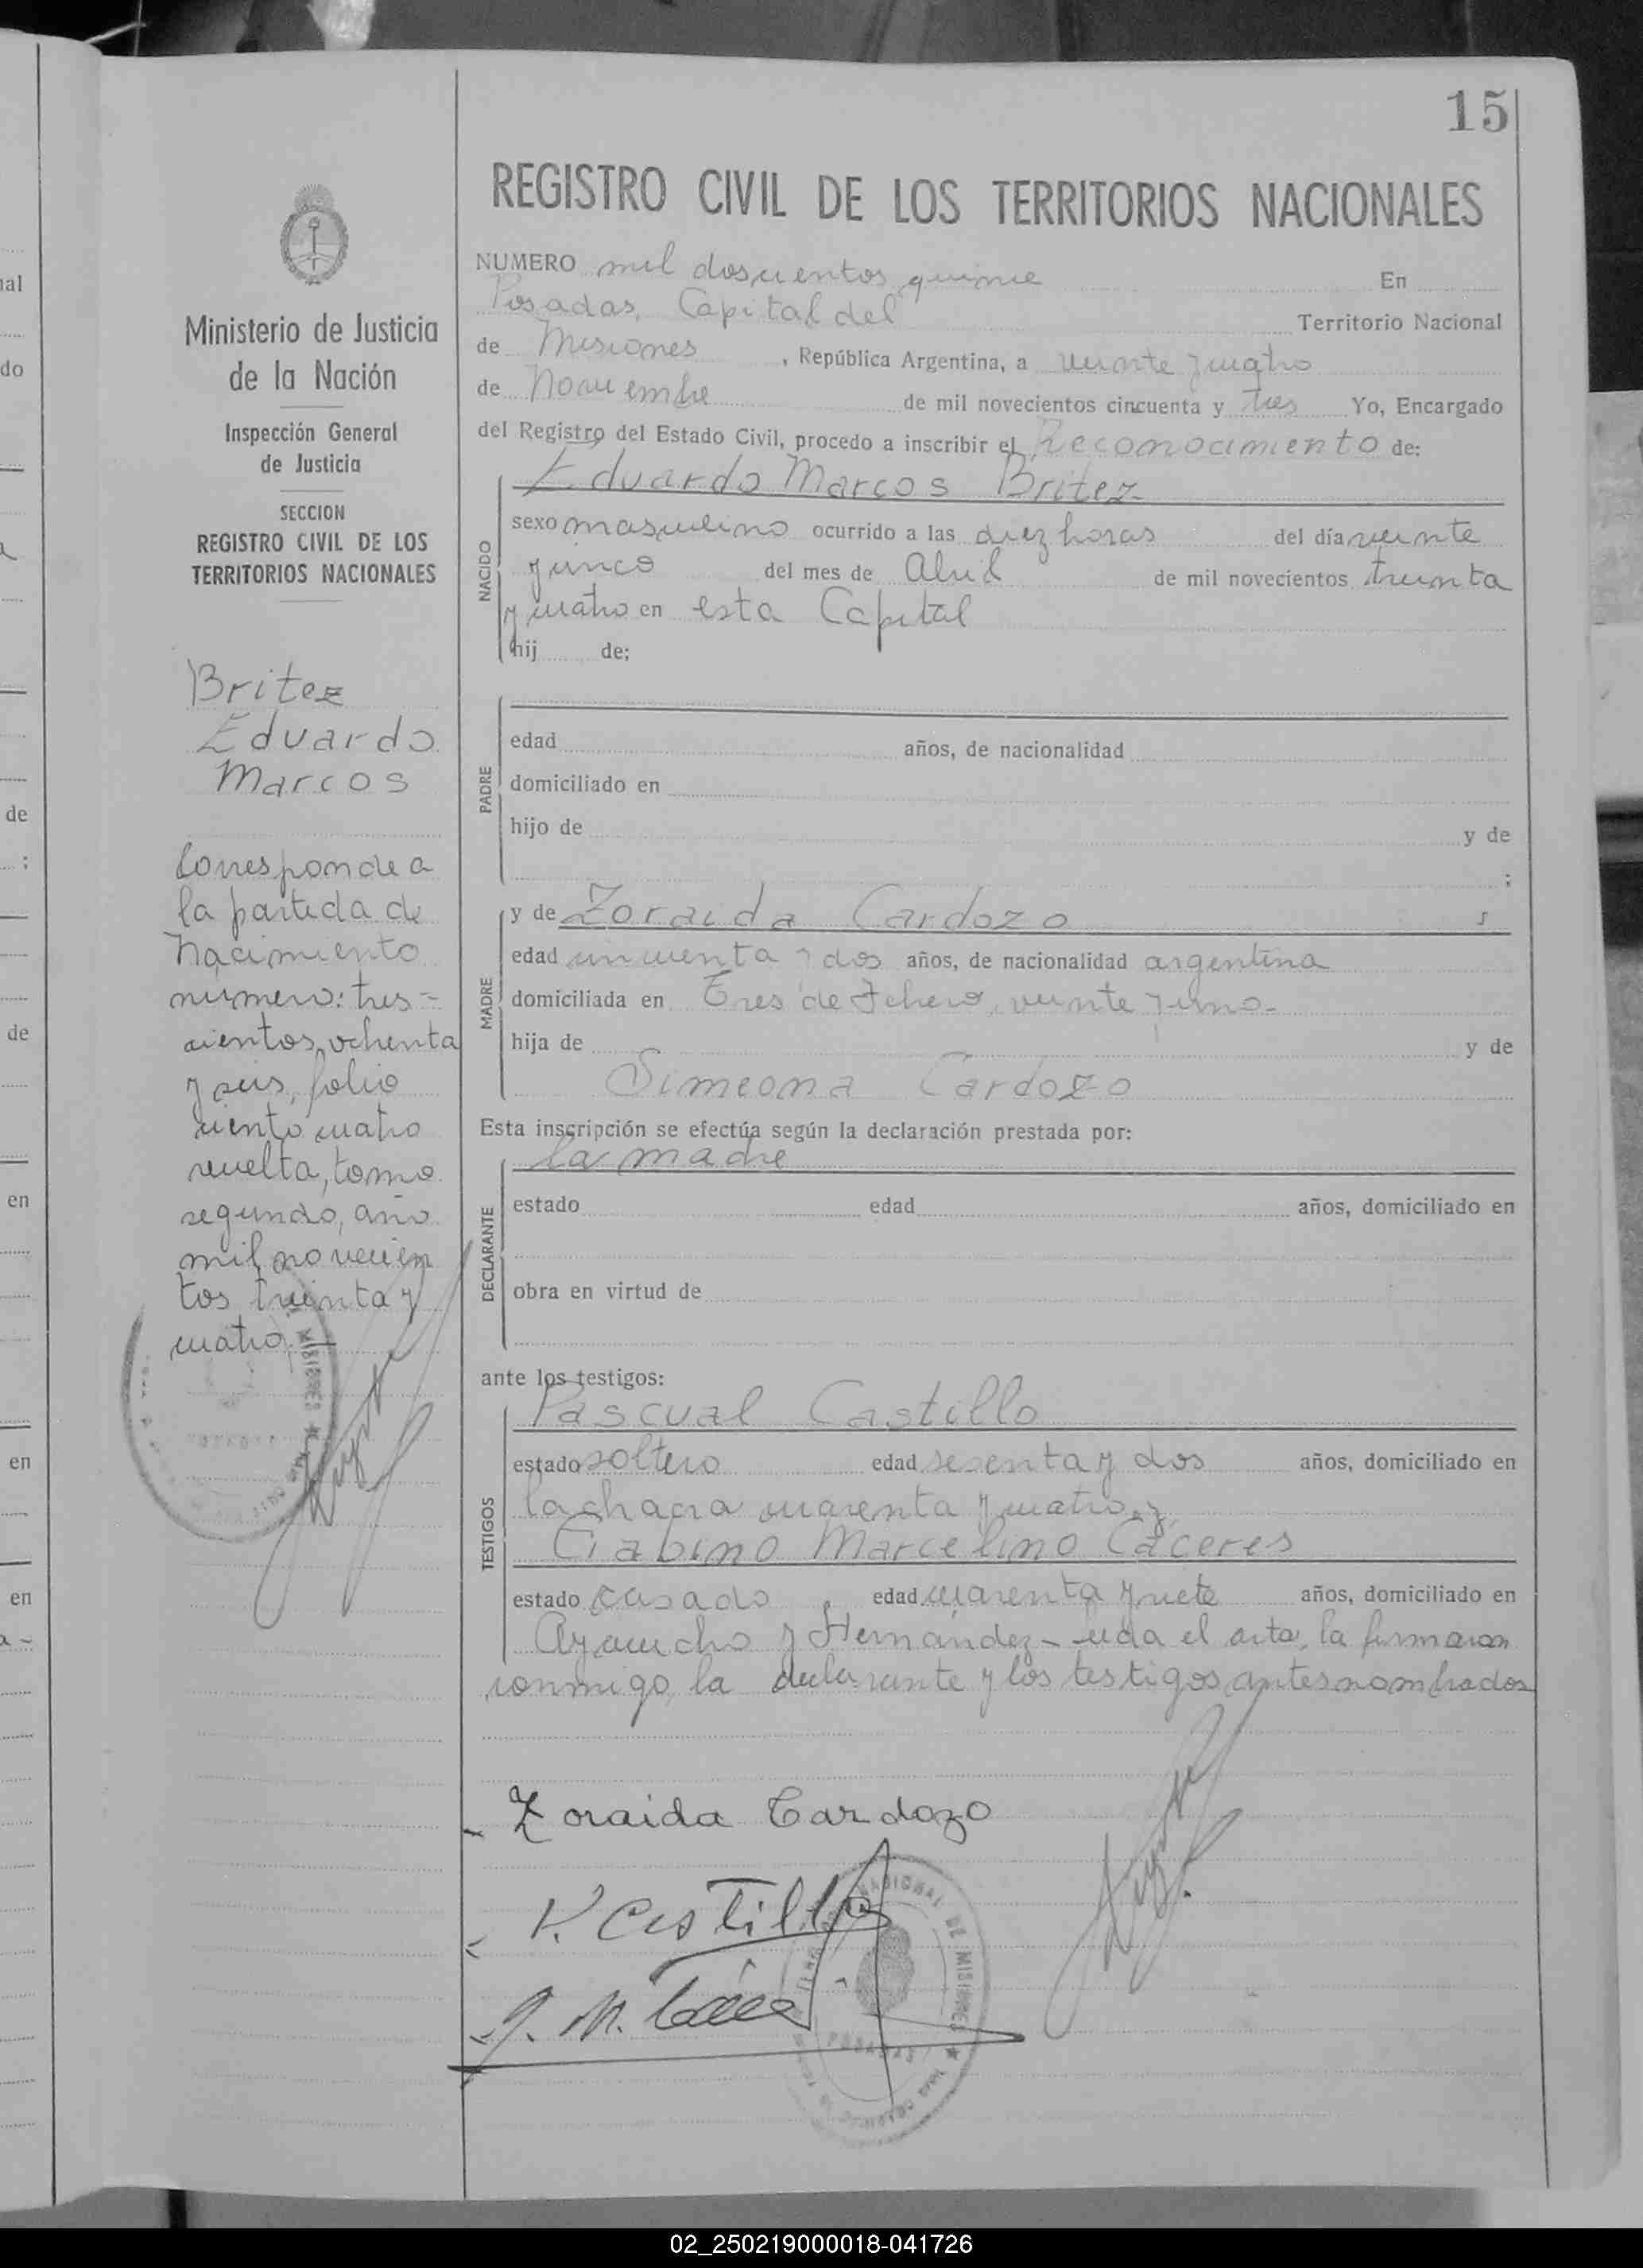 15
REGISTRO CIVIL DE LOS TERRITORIOS NACIONALES
NUMERO mil doscientos quince En
Posadas, Capital del Territorio Nacional
de Misiones, República Argentina, a veinte y cuatro
de Noviembre de mil novecientos cincuenta y tres Yo, Encargado
del Registro del Estado Civil, procedo a inscribir el Reconocimiento de:
Eduardo Marcos Britez
NACIDO
sexo masculino ocurrido a las diez horas del día veinte
y cinco del mes de Abril de mil novecientos treinta
y cuatro en esta Capital
hij de;
PADRE
edad años, de nacionalidad
domiciliado en
hijo de y de
;
MADRE
y de Zoraida Cardozo
edad cincuenta y dos años, de nacionalidad argentina
domiciliada en Tres de Febrero, veinte y uno-
hija de y de
Simeona Cardozo
Esta inscripción se efectúa según la declaración prestada por:
la madre
DECLARANTE
estado edad años, domiciliado en
obra en virtud de
ante los testigos:
TESTIGOS
Pascual Castillo
estado soltero edad sesenta y dos años, domiciliado en
la chacra cuarenta y cuatro, y
Gabino Marcelino Cáceres
estado casado edad cuarenta y siete años, domiciliado en
Ayacucho y Hernández - Leída el acta, la firmaron
conmigo, la declarante y los testigos antes nombrados
Zoraida Cardozo
P. Castillo
G. M. Cáceres
NACIONAL DE MISIONES
POSADAS
Ministerio de Justicia
de la Nación
Inspección General
de Justicia
SECCION
REGISTRO CIVIL DE LOS
TERRITORIOS NACIONALES
Britez
Eduardo
Marcos
Corresponde a
la partida de
Nacimiento
número: tres-
cientos ochenta
y seis, folio
ciento cuatro
vuelta, tomo
segundo, año
mil novecien
tos treinta y
cuatro.-
MISIONES
al
do
de
:
de
en
en
en
02_250219000018-041726